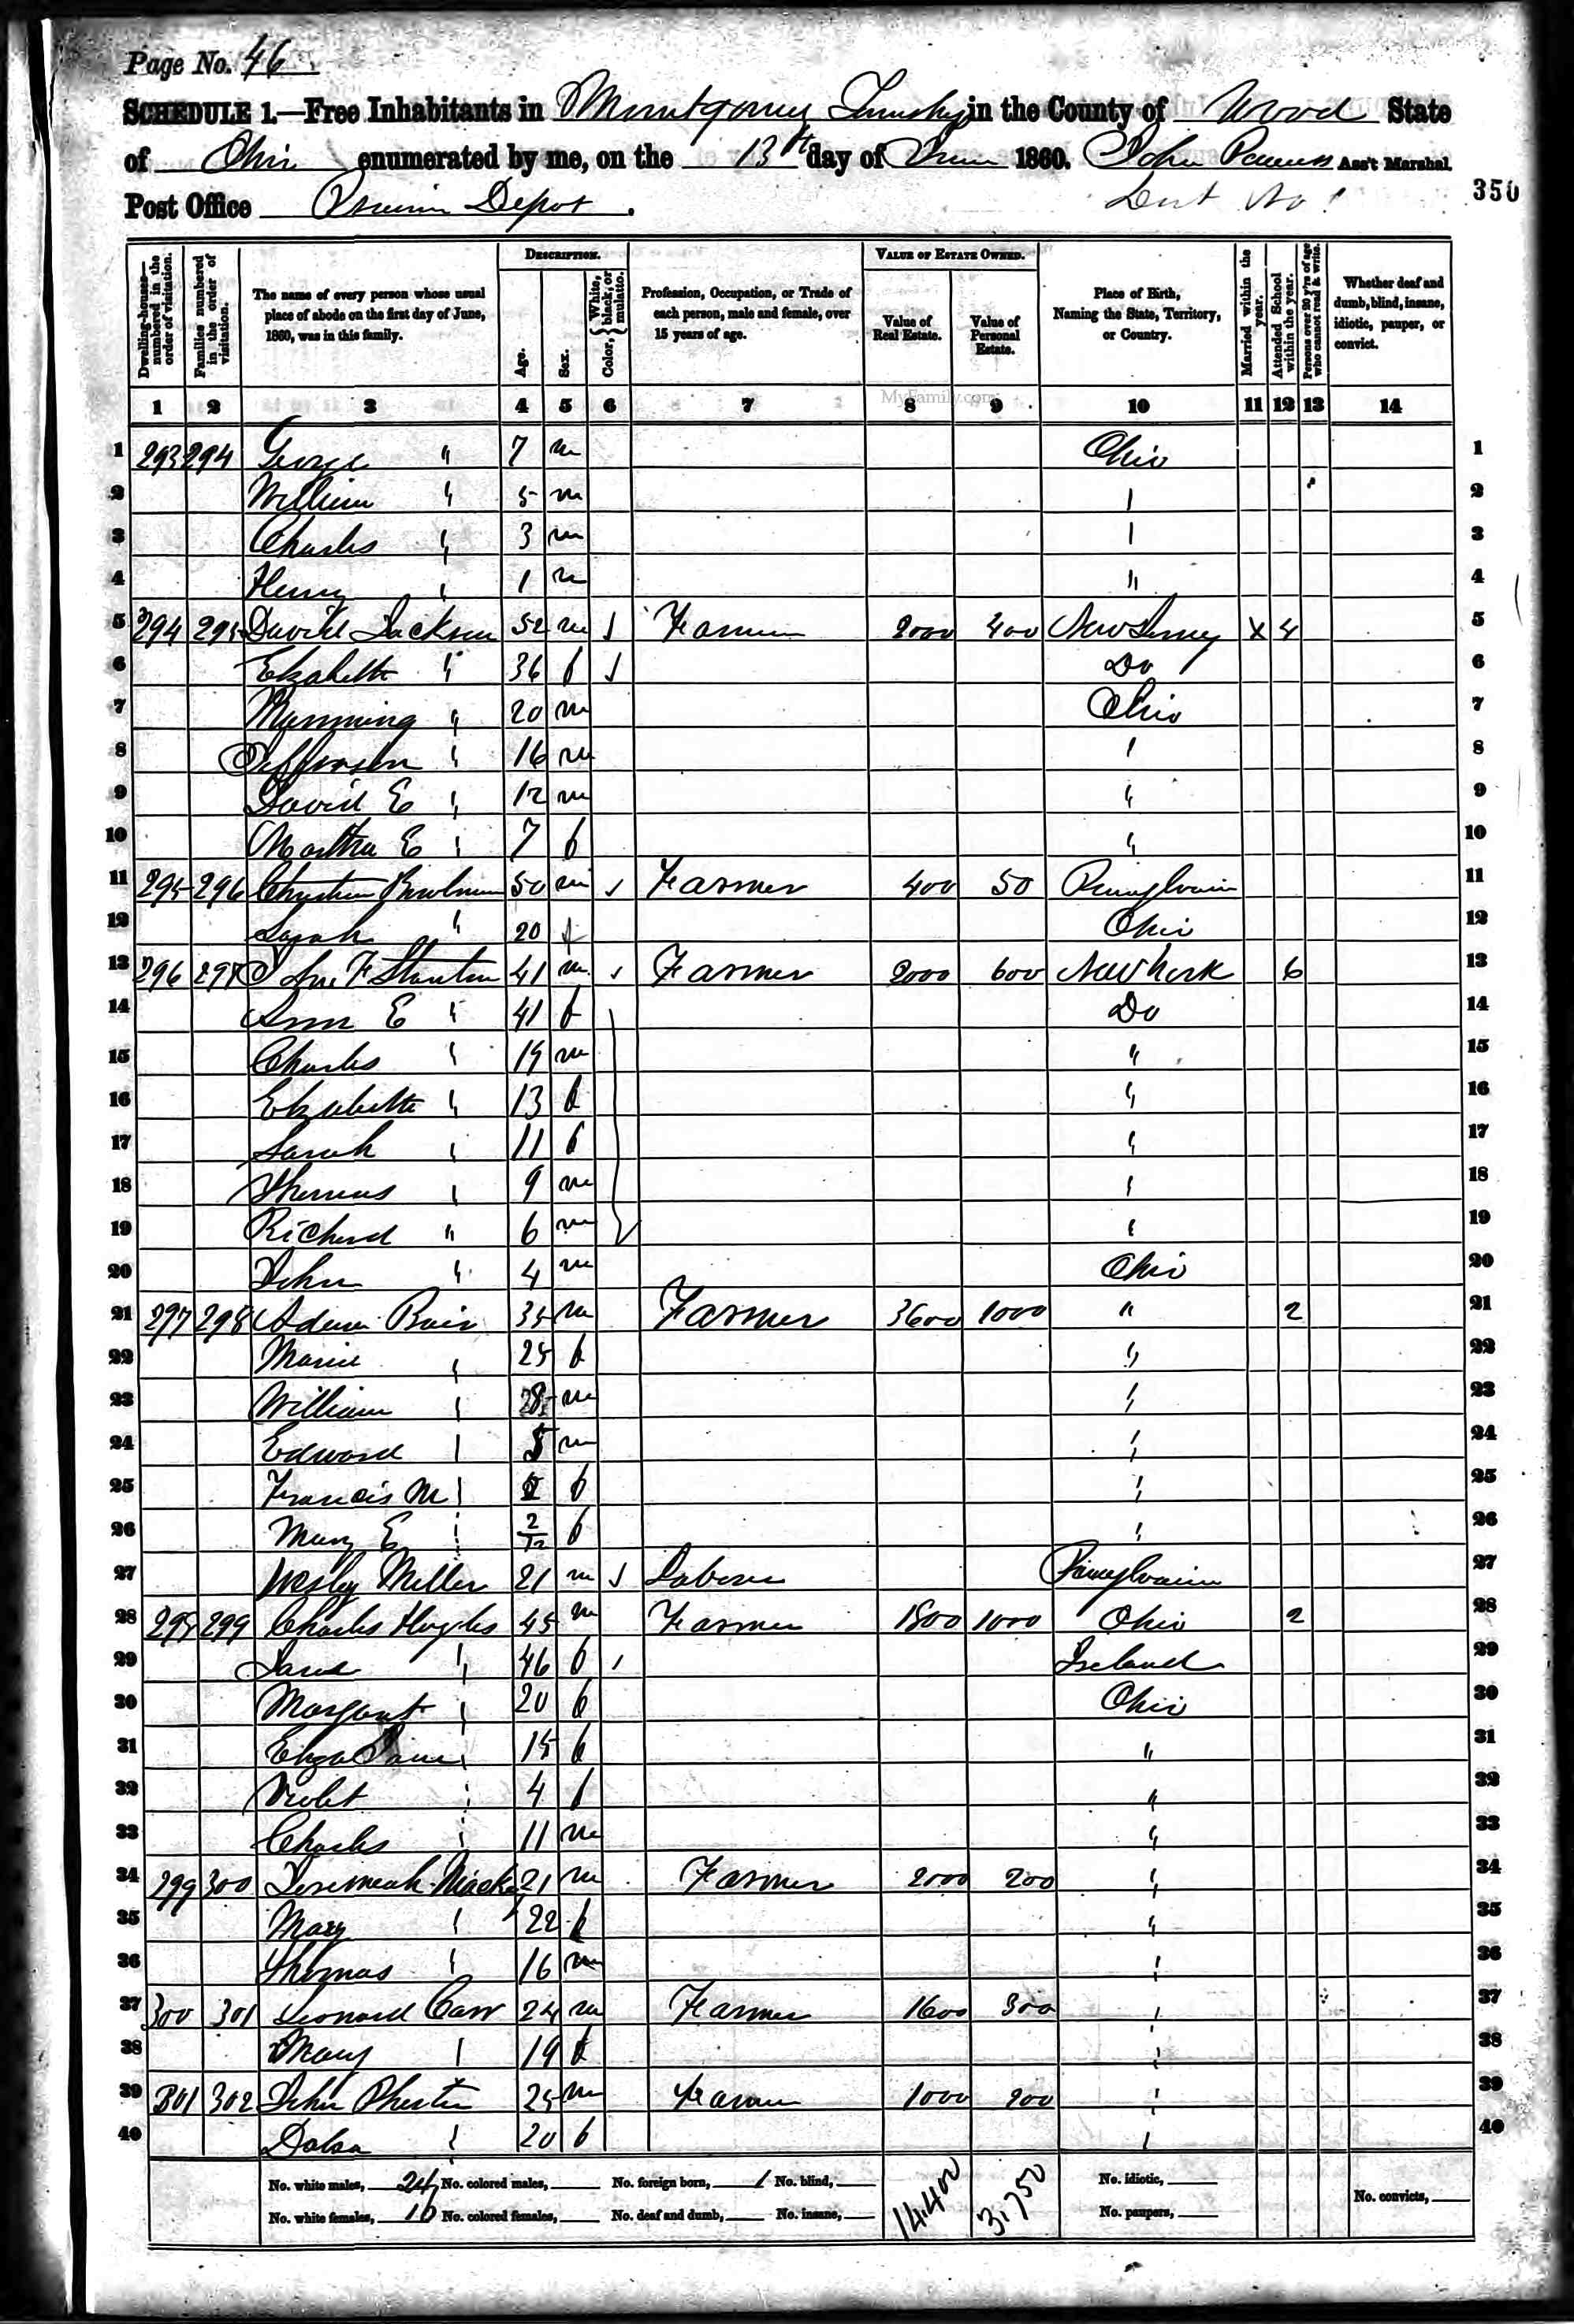 Page No. 46
SCHEDULE 1.—Free Inhabitants in Montgomery Township in the County of Wood State
of Ohio enumerated by me, on the 13th day of June 1860. John Ass't Marshal.
Post Office Depot. 350
Dwelling-houses—numbered in the order of visitation.
Families numbered in the order of visitation.
The name of every person whose usual place of abode on the first day of June, 1860, was in this family.
DESCRIPTION.
Age.
Sex.
Color, { White, black, or mulatto.
Profession, Occupation, or Trade of each person, male and female, over 15 years of age.
VALUE OF ESTATE OWNED.
Value of Real Estate.
Value of Personal Estate.
Place of Birth, Naming the State, Territory, or Country.
Married within the year.
Attended School within the year.
Persons over 20 y'rs of age who cannot read & write.
Whether deaf and dumb, blind, insane, idiotic, pauper, or convict.
MyFamily.com
1 2 3 4 5 6 7 8 9 10 11 12 13 14
1 293 294 George " 7 m Ohio 1
2 William " 5 m " 2
3 Charles " 3 m " 3
4 Henry " 1 m " 4
5 294 295 David Jackson 52 m Farmer 2000 400 New Jersey X 4 5
6 Elizabeth " 36 f Do 6
7 " 20 m Ohio 7
8 Jefferson " 16 m " 8
9 David E " 12 m " 9
10 Martha E " 7 f " 10
11 295 296 50 m Farmer 400 50 Pennsylvania 11
12 Sarah " 20 f Ohio 12
13 296 297 F Stanton 41 m Farmer 2000 600 New York 6 13
14 Ann E " 41 f Do 14
15 Charles " 19 m " 15
16 Elizabeth " 13 f " 16
17 Sarah " 11 f " 17
18 Thomas " 9 m " 18
19 Richard " 6 m " 19
20 John " 4 m Ohio 20
21 297 298 Adam 35 m Farmer 3600 1000 " 2 21
22 " 25 f " 22
23 William " m " 23
24 Edward " m " 24
25 Francis M " f " 25
26 Mary E " 2/12 f " 26
27 Wesley Miller 21 m Laborer Pennsylvania 27
28 298 299 Charles Hughes 45 m Farmer 1800 1000 Ohio 2 28
29 Jane " 46 f Ireland 29
30 Margaret " 20 f Ohio 30
31 Eliza Jane " 15 f " 31
32 Violet " 4 f " 32
33 Charles " 11 m " 33
34 299 300 Jeremiah 21 m Farmer 2000 200 " 34
35 Mary " 22 f " 35
36 Thomas " 16 m " 36
37 300 301 Leonard Carr 24 m Farmer 1600 300 " 37
38 Mary " 19 f " 38
39 301 302 John 25 m Farmer 1000 200 " 39
40 " 20 f " 40
No. white males, 24 No. colored males, No. foreign born, 1 No. blind, 14,400 3,750 No. idiotic,
No. white females, 16 No. colored females, No. deaf and dumb, No. insane, No. paupers, No. convicts,